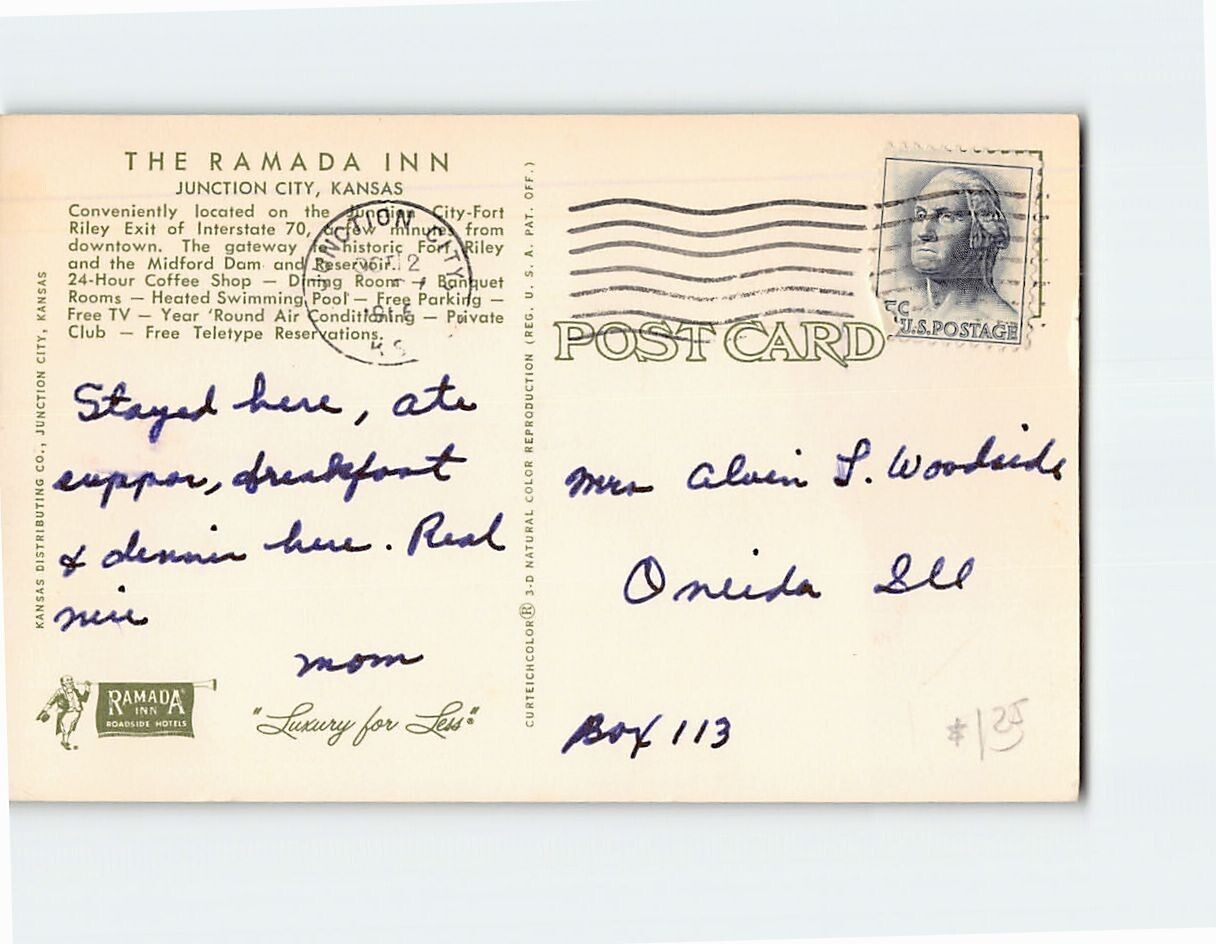 THE RAMADA INN
JUNCTION CITY, KANSAS
Conveniently located on the Junction City-Fort
Riley Exit of Interstate 70, a few minutes from
downtown. The gateway to historic Fort Riley
and the Midford Dam and Reservoir.
24-Hour Coffee Shop — Dining Room — Banquet
Rooms — Heated Swimming Pool — Free Parking —
Free TV — Year 'Round Air Conditioning — Private
Club — Free Teletype Reservations.
KANSAS DISTRIBUTING CO., JUNCTION CITY, KANSAS
Stayed here, ate
supper, breakfast
& dinner here. Real
nice
mom
RAMADA®
INN
ROADSIDE HOTELS
"Luxury for Less"®
CURTEICHCOLOR® 3-D NATURAL COLOR REPRODUCTION (REG. U. S. A. PAT. OFF.)
JUNCTION CITY
OCT 12
KS
5c
U.S.POSTAGE
POST CARD
Mrs Alvin L. Woodside
Oneida Ill
Box 113
$125